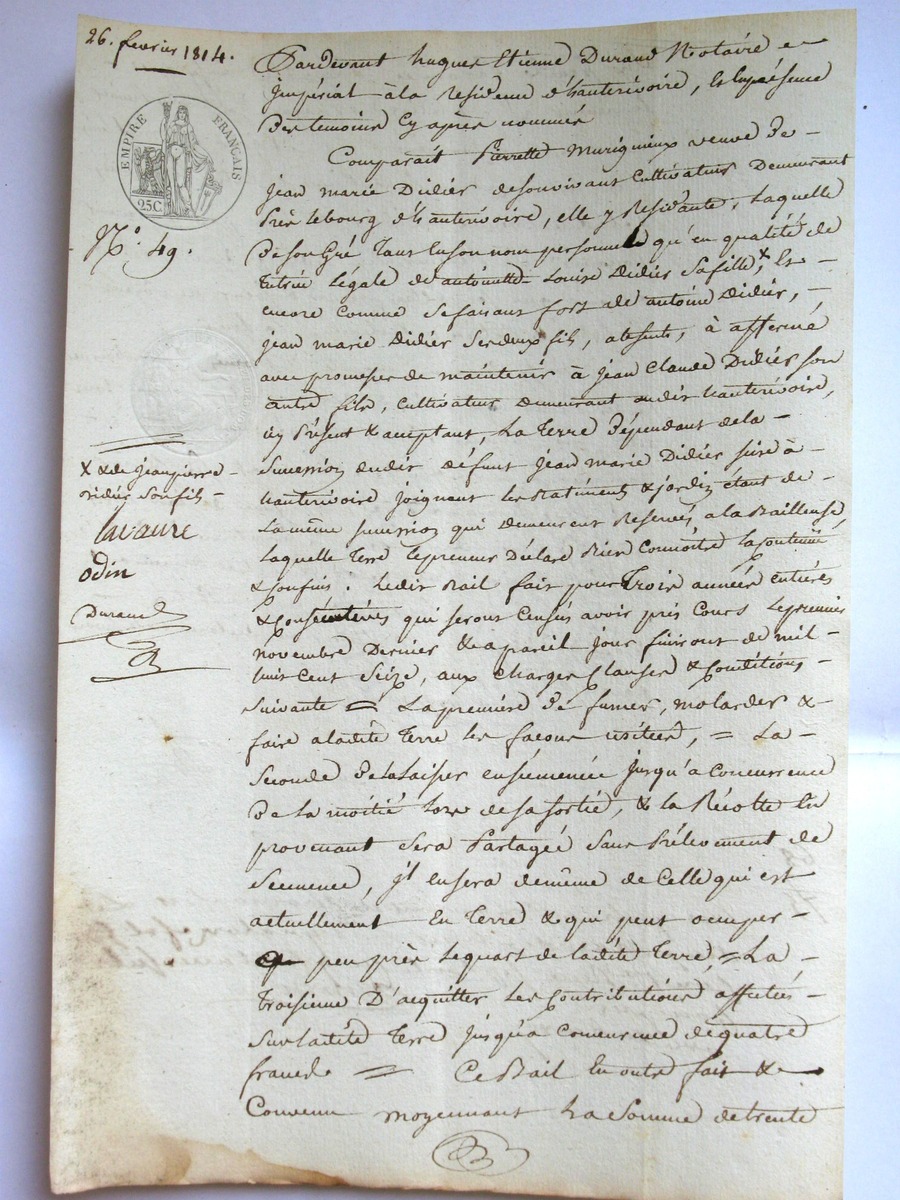 26. fevrier 1814.
EMPIRE FRANÇAIS
25C
N.° 49.
X X de jeanpierre
Didier son fils
lavaure
odin
Durand
Pardevant hugues Etienne Durand Notaire
jmpérial à la residence d'hauterivoire, En la présence
Des temoins Cy après nommés
Comparait Pierrette Murigneux veuve De
jean marie Didier de son vivant Cultivateur Demeurant
Près le bourg d'hauterivoire, elle y Residante, Laquelle
De son Gré Tant En son nom personnel qu'en qualité de
Tutrice légale de antoinette Louise Didier sa fille X Et
encore Comme se faisant fort de antoine Didier,
jean marie Didier ses deux fils, absents, à affermé
avec promesse de maintenir à jean Claude Didier son
autre fils, Cultivateur Demeurant audit hauterivoire,
icy Présent & acceptant, La Terre Dépendant de la
Succession dudit défunt jean marie Didier sise à
hauterivoire joignant les Batiments & jardin étant de
La même succession qui demeurent Reservés a la Bailleuse
Laquelle Terre le preneur Déclare Bien Connoitre la Contenue
& Confins. Ledit Bail fait pour Trois années entières
& Consécutives qui seront Censés avoir pris Cours le premier
novembre Dernier & a pareil jour finiront de mil
huit Cent Seize, aux Charges Clauses & Conditions
Suivante = La première De fumer, molarder &
faire a ladite Terre les façons usitées, = La
Seconde De la Laisser ensémenée jusqu'a Concurrence
De la moitié Lors de sa sortie, & la Récolte En
provenant Sera Partagée Sans Prélevement de
Semence, jl en sera de même de Celle qui est
actuellement En Terre & qui peut occuper
peu près le quart de ladite Terre, = La
Troisieme D'acquitter les Contributions affectées
Sur ladite Terre jusqu'a Concurrence de quatre
francs = Ce Bail En outre fait &
Convenu moyennant La Somme de trente